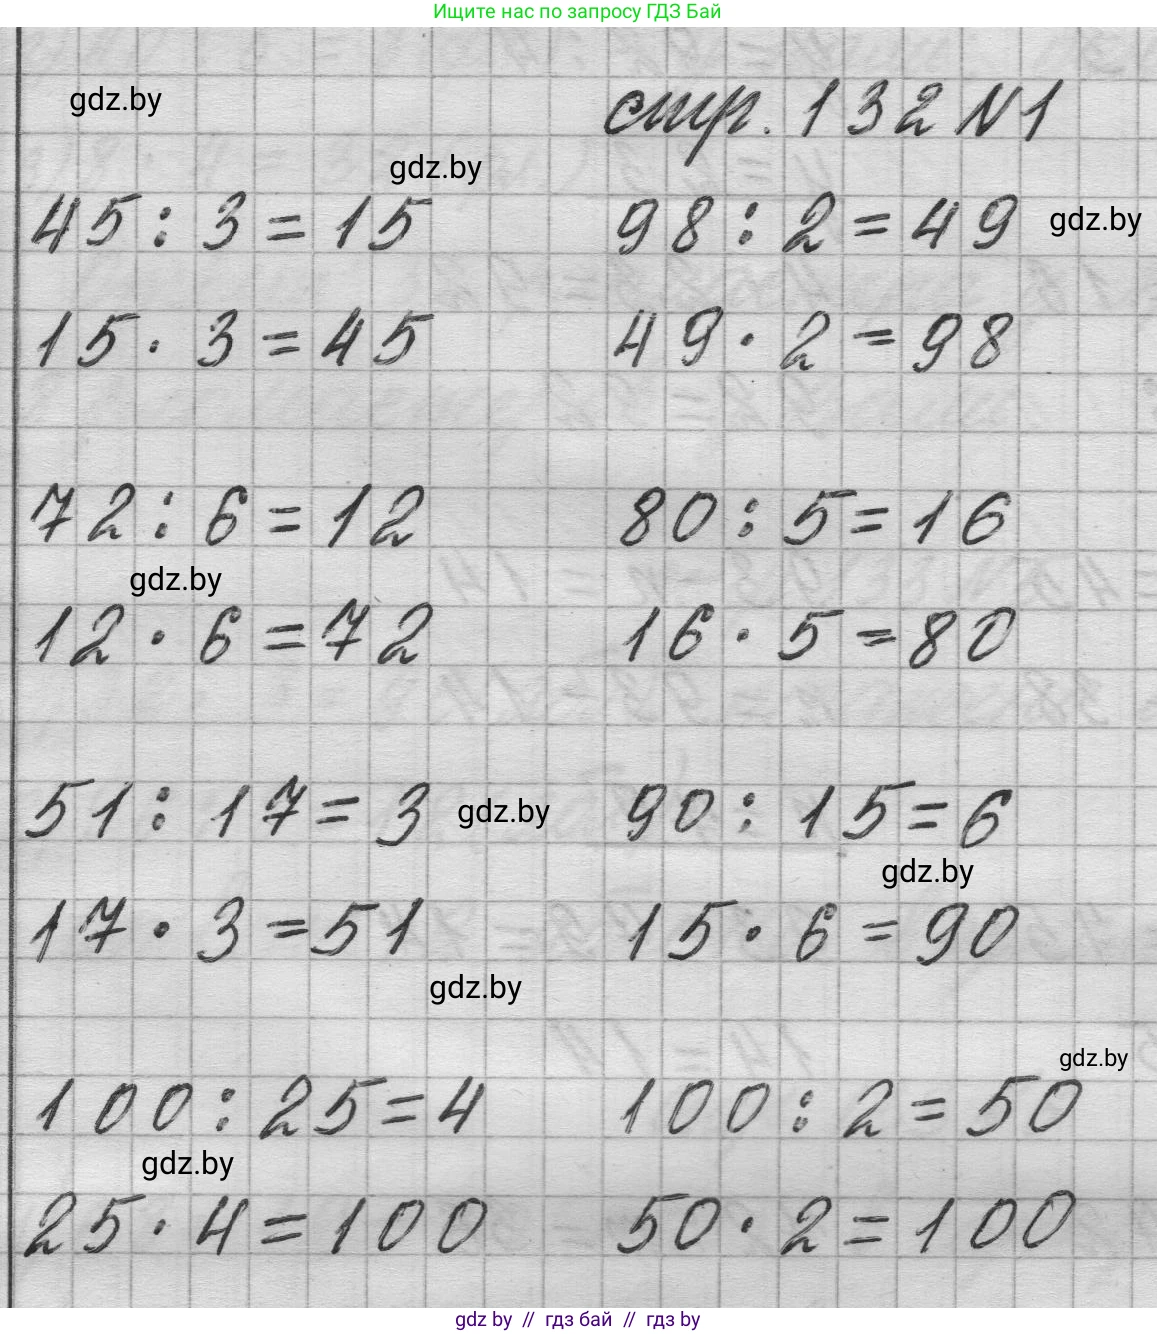 Ищите нас по запросу ГДЗ Бай
gdz.by
стр. 132 N1
gdz.by
45 : 3 = 15 98 : 2 = 49 gdz.by
15 · 3 = 45 49 · 2 = 98
72 : 6 = 12 80 : 5 = 16
gdz.by
12 · 6 = 72 16 · 5 = 80
51 : 17 = 3 gdz.by 90 : 15 = 6
gdz.by
17 · 3 = 51 15 · 6 = 90
gdz.by
gdz.by
100 : 25 = 4 100 : 2 = 50
gdz.by
25 · 4 = 100 50 · 2 = 100
gdz by // гдз бай // гдз by